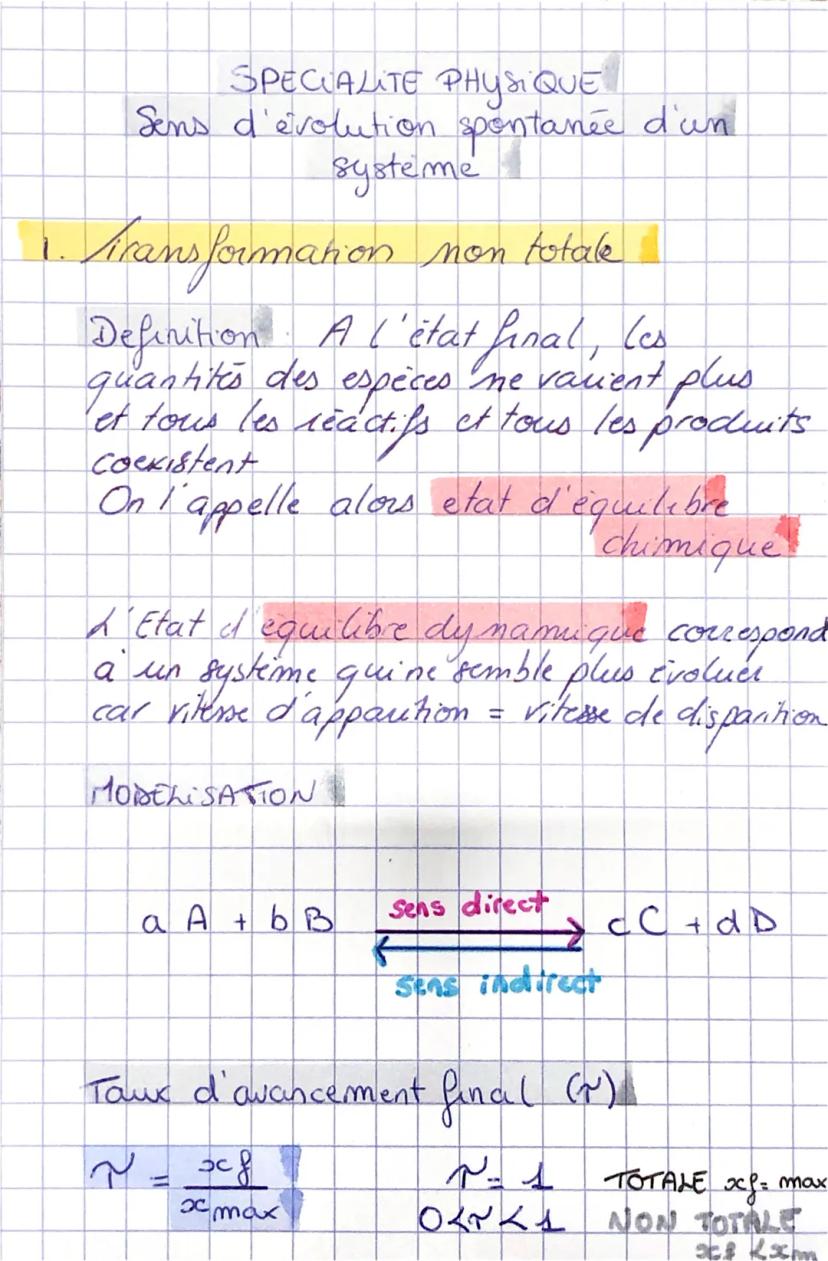 SPECIALITE PHYSIQUE
Sens d'évolution spontanée d'un
système
1. Transformation non totale
Definition : A l'état final, les
quantités des espèces ne varient plus
et tous les réactifs et tous les produits
coexistent
On l'appelle alors etat d'équilibre
chimique
L'Etat d'équilibre dynamique correspond
à un système qui ne semble plus évoluer
car vitesse d'apparition = vitesse de disparition
MODELISATION
sens direct
a A + b B ⇄ c C + d D
sens indirect
Taux d'avancement final (τ)
τ = xf / xmax
τ = 1 TOTALE xf = max
0 < τ < 1 NON TOTALE
xf < xm